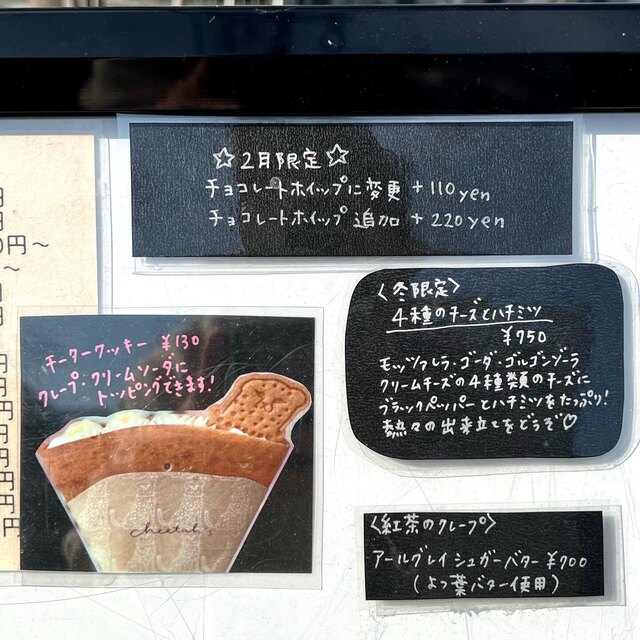 ☆2月限定☆
チョコレートホイップに変更 +110yen
チョコレートホイップ 追加 +220yen
〈冬限定〉
4種のチーズとハチミツ
¥950
モッツァレラ・ゴーダ・ゴルゴンゾーラ
クリームチーズの4種類のチーズに
ブラックペッパーとハチミツをたっぷり!
熱々の出来立てをどうぞ♡
チータークッキー ¥130
クレープ・クリームソーダに
トッピングできます!
cheetah
〈紅茶のクレープ〉
アールグレイシュガーバター ¥700
(よつ葉バター使用)
円
円
0円~
~
円
円
円
円
円
円
円
円
円